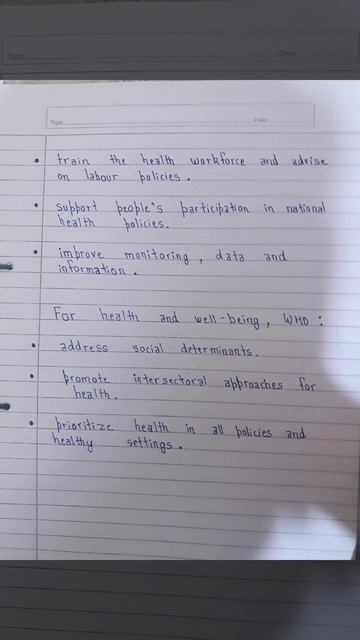 Topic
Date
Topic
Date
• train the health workforce and advise
on labour policies.
• support people's participation in national
health policies.
• improve monitoring, data and
information.
For health and well-being, WHO:
• address social determinants.
• promote intersectoral approaches for
health.
• prioritize health in all policies and
healthy settings.